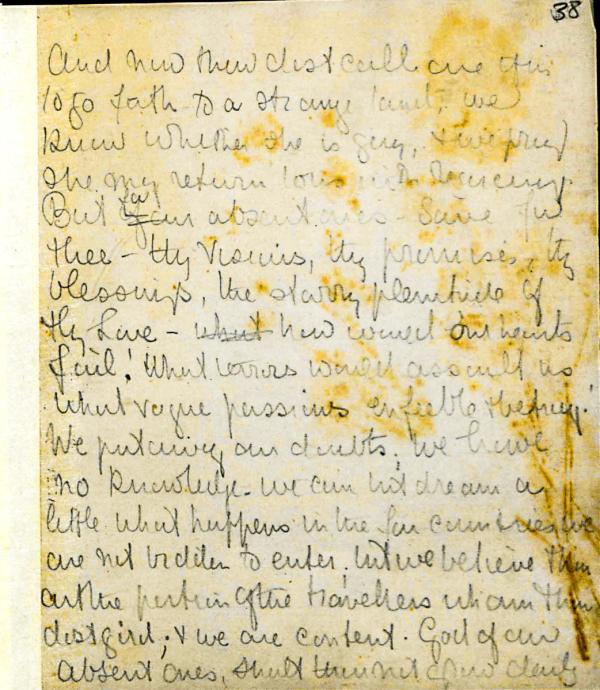 38
And now thou didst call one of us
to go forth to a strange land; we
know whether she is going, & we pray
she may return to us with
But for our absent ones - Save for
thee - thy visions, thy promises, thy
blessings, the starry plenitude of
thy Love - what how would our hearts
fail! What terrors would assault us
what vague passions enfeeble & betray!
We put away our doubts. We have
no knowledge. we can but dream a
little what happens in the far countries we
are not bidden to enter, but we believe thou
art the portion of the travellers whom thou
didst gird; & we are content. God of our
absent ones, shalt thou not draw